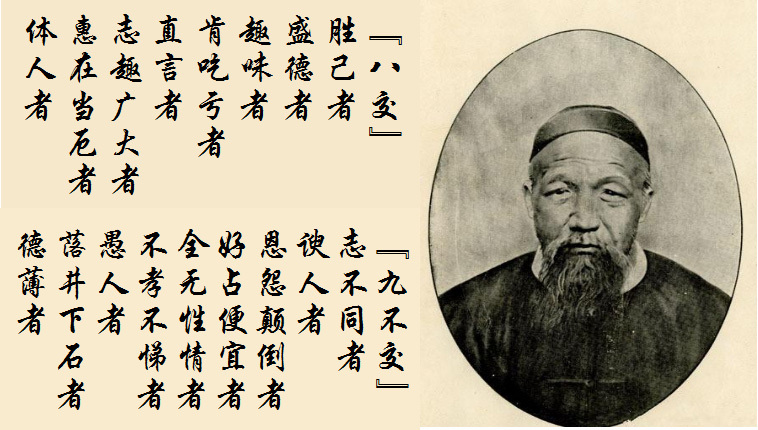 『八交』
胜己者
盛德者
趣味者
肯吃亏者
直言者
志趣广大者
惠在当厄者
体人者
『九不交』
志不同者
谀人者
恩怨颠倒者
好占便宜者
全无性情者
不孝不悌者
愚人者
落井下石者
德薄者